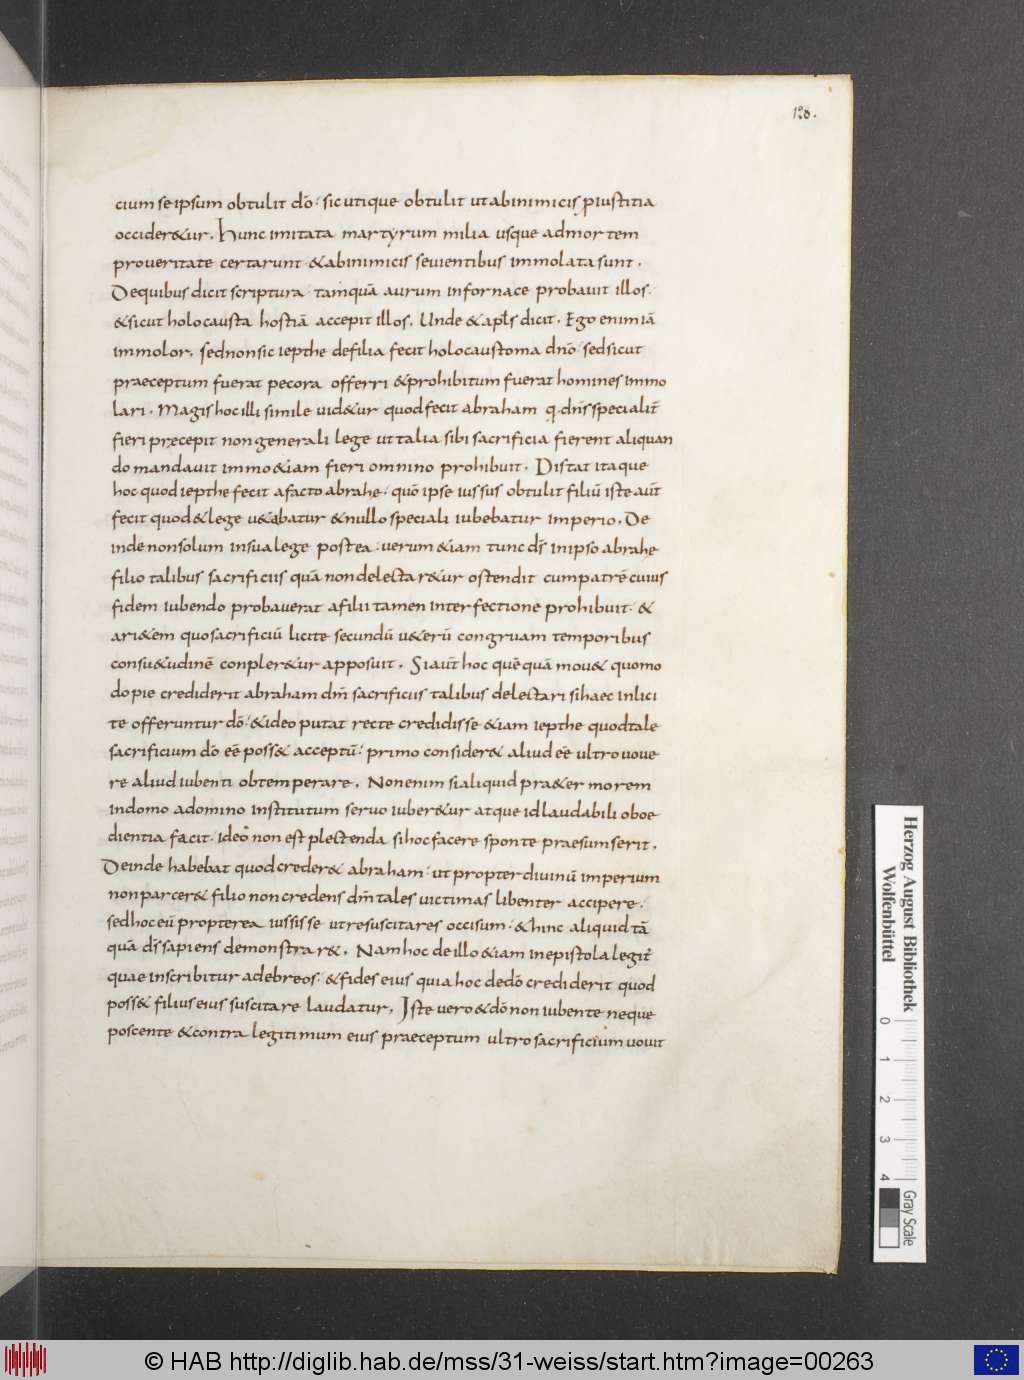 128.
cium se ipsum obtulit dō. sic utique obtulit ut ab inimicis p iustitia
occider&ur. Hunc imitata martyrum milia usque ad mortem
pro veritate certarunt. & ab inimicis sevientibus immolata sunt.
De quibus dicit scriptura. tamquā aurum in fornace probavit illos.
& sicut holocausta hostiā accepit illos. Unde & apłs dicit. Ego enim iā
immolor. sed non sic iepthe de filia fecit holocaustoma dnō. sed sicut
praeceptum fuerat pecora offerri & prohibitum fuerat homines immo
lari. Magis hoc illi simile vid&ur quod fecit abraham q. dn̄s specialit̄
fieri pręcepit non generali lege ut talia sibi sacrificia fierent aliquan
do mandavit immo &iam fieri omnino prohibuit. Distat itaque
hoc quod iepthe fecit a facto abrahe. quō ipse iussus obtulit filiū iste aut̄
fecit quod & lege v&abatur & nullo speciali iubebatur imperio. De
inde non solum in sua lege postea. verum &iam tunc ds̄ in ipso abrahę
filio talibus sacrificiis quā non delectar&ur ostendit cum patrē cuius
fidem iubendo probaverat a filii tamen interfectione prohibuit. &
ari&em quo sacrificiū licite secundū v&erū congruam temporibus
consu&udinē conpler&ur apposuit. Si aut̄ hoc quē quā mov& quomo
do pie crediderit abraham dm̄ sacrificiis talibus delectari si haec inlici
te offeruntur dō. & ideo putat recte credidisse &iam iepthe quod tale
sacrificium dō eē poss& acceptū. primo consider& aliud eē ultro vove
re aliud iubenti obtemperare. Non enim si aliquid pra&er morem
in domo a domino institutum servo iuber&ur atque id laudabili oboe
dientia facit. ideo non est plectenda si hoc facere sponte praesumserit.
Deinde habebat quod creder& abraham. ut propter divinū imperium
non parcer& filio non credens dm̄ tales victimas libenter accipere.
sed hoc eū propterea iussisse ut resuscitares occisum. & hinc aliquid tā
quā ds̄ sapiens demonstrar&. Nam hoc de illo &iam in epistola legit̄
quae inscribitur ad ebreos. & fides eius quia hoc de dō crediderit quod
poss& filius eius suscitare laudatur. Iste vero & dō non iubente neque
poscente & contra legitimum eius praeceptum ultro sacrificium vovit
Herzog August Bibliothek
Wolfenbüttel
0 1 2 3 4
Gray Scale
© HAB http://diglib.hab.de/mss/31-weiss/start.htm?image=00263